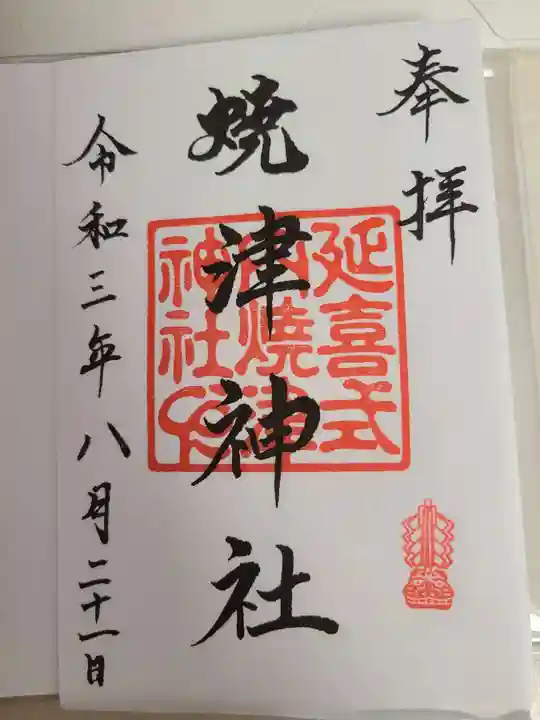 奉拝
焼津神社
延喜式
神社
令和三年八月二十一日